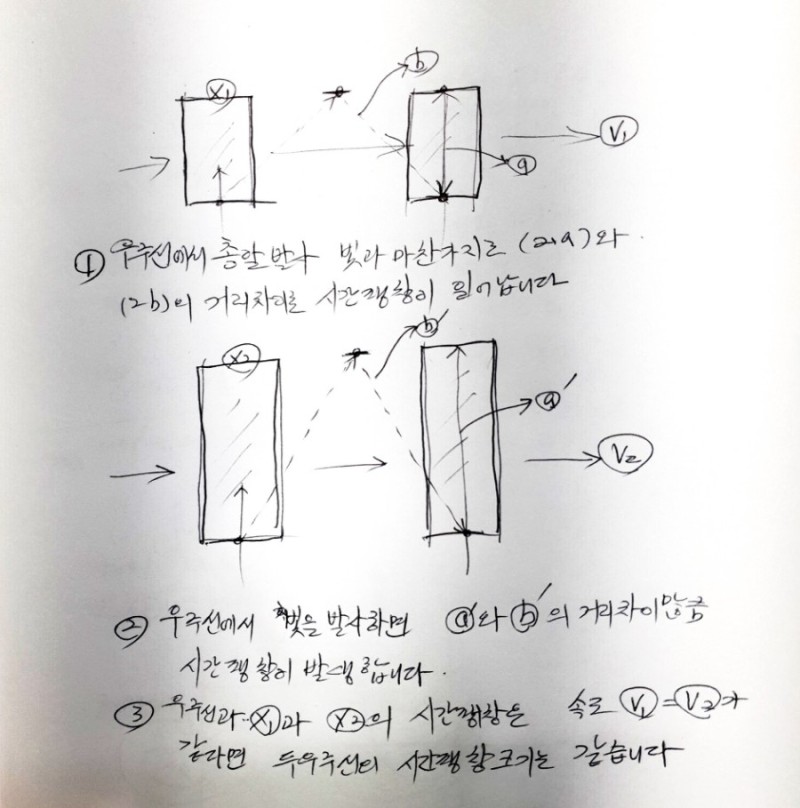 X₁
b
V₁
a
① 우주선에서 총알 발사 빛과 마찬가지로 (2a)와
(2b)의 거리차이로 시간팽창이 일어납니다
X₂
b′
a′
V₂
② 우주선에서 빛을 발사하면 a′와 b′의 거리차이만큼
시간팽창이 발생합니다.
③ 우주선과 X₁과 X₂의 시간팽창은 속도 V₁=V₂가
같다면 두우주선의 시간팽창크기는 같습니다